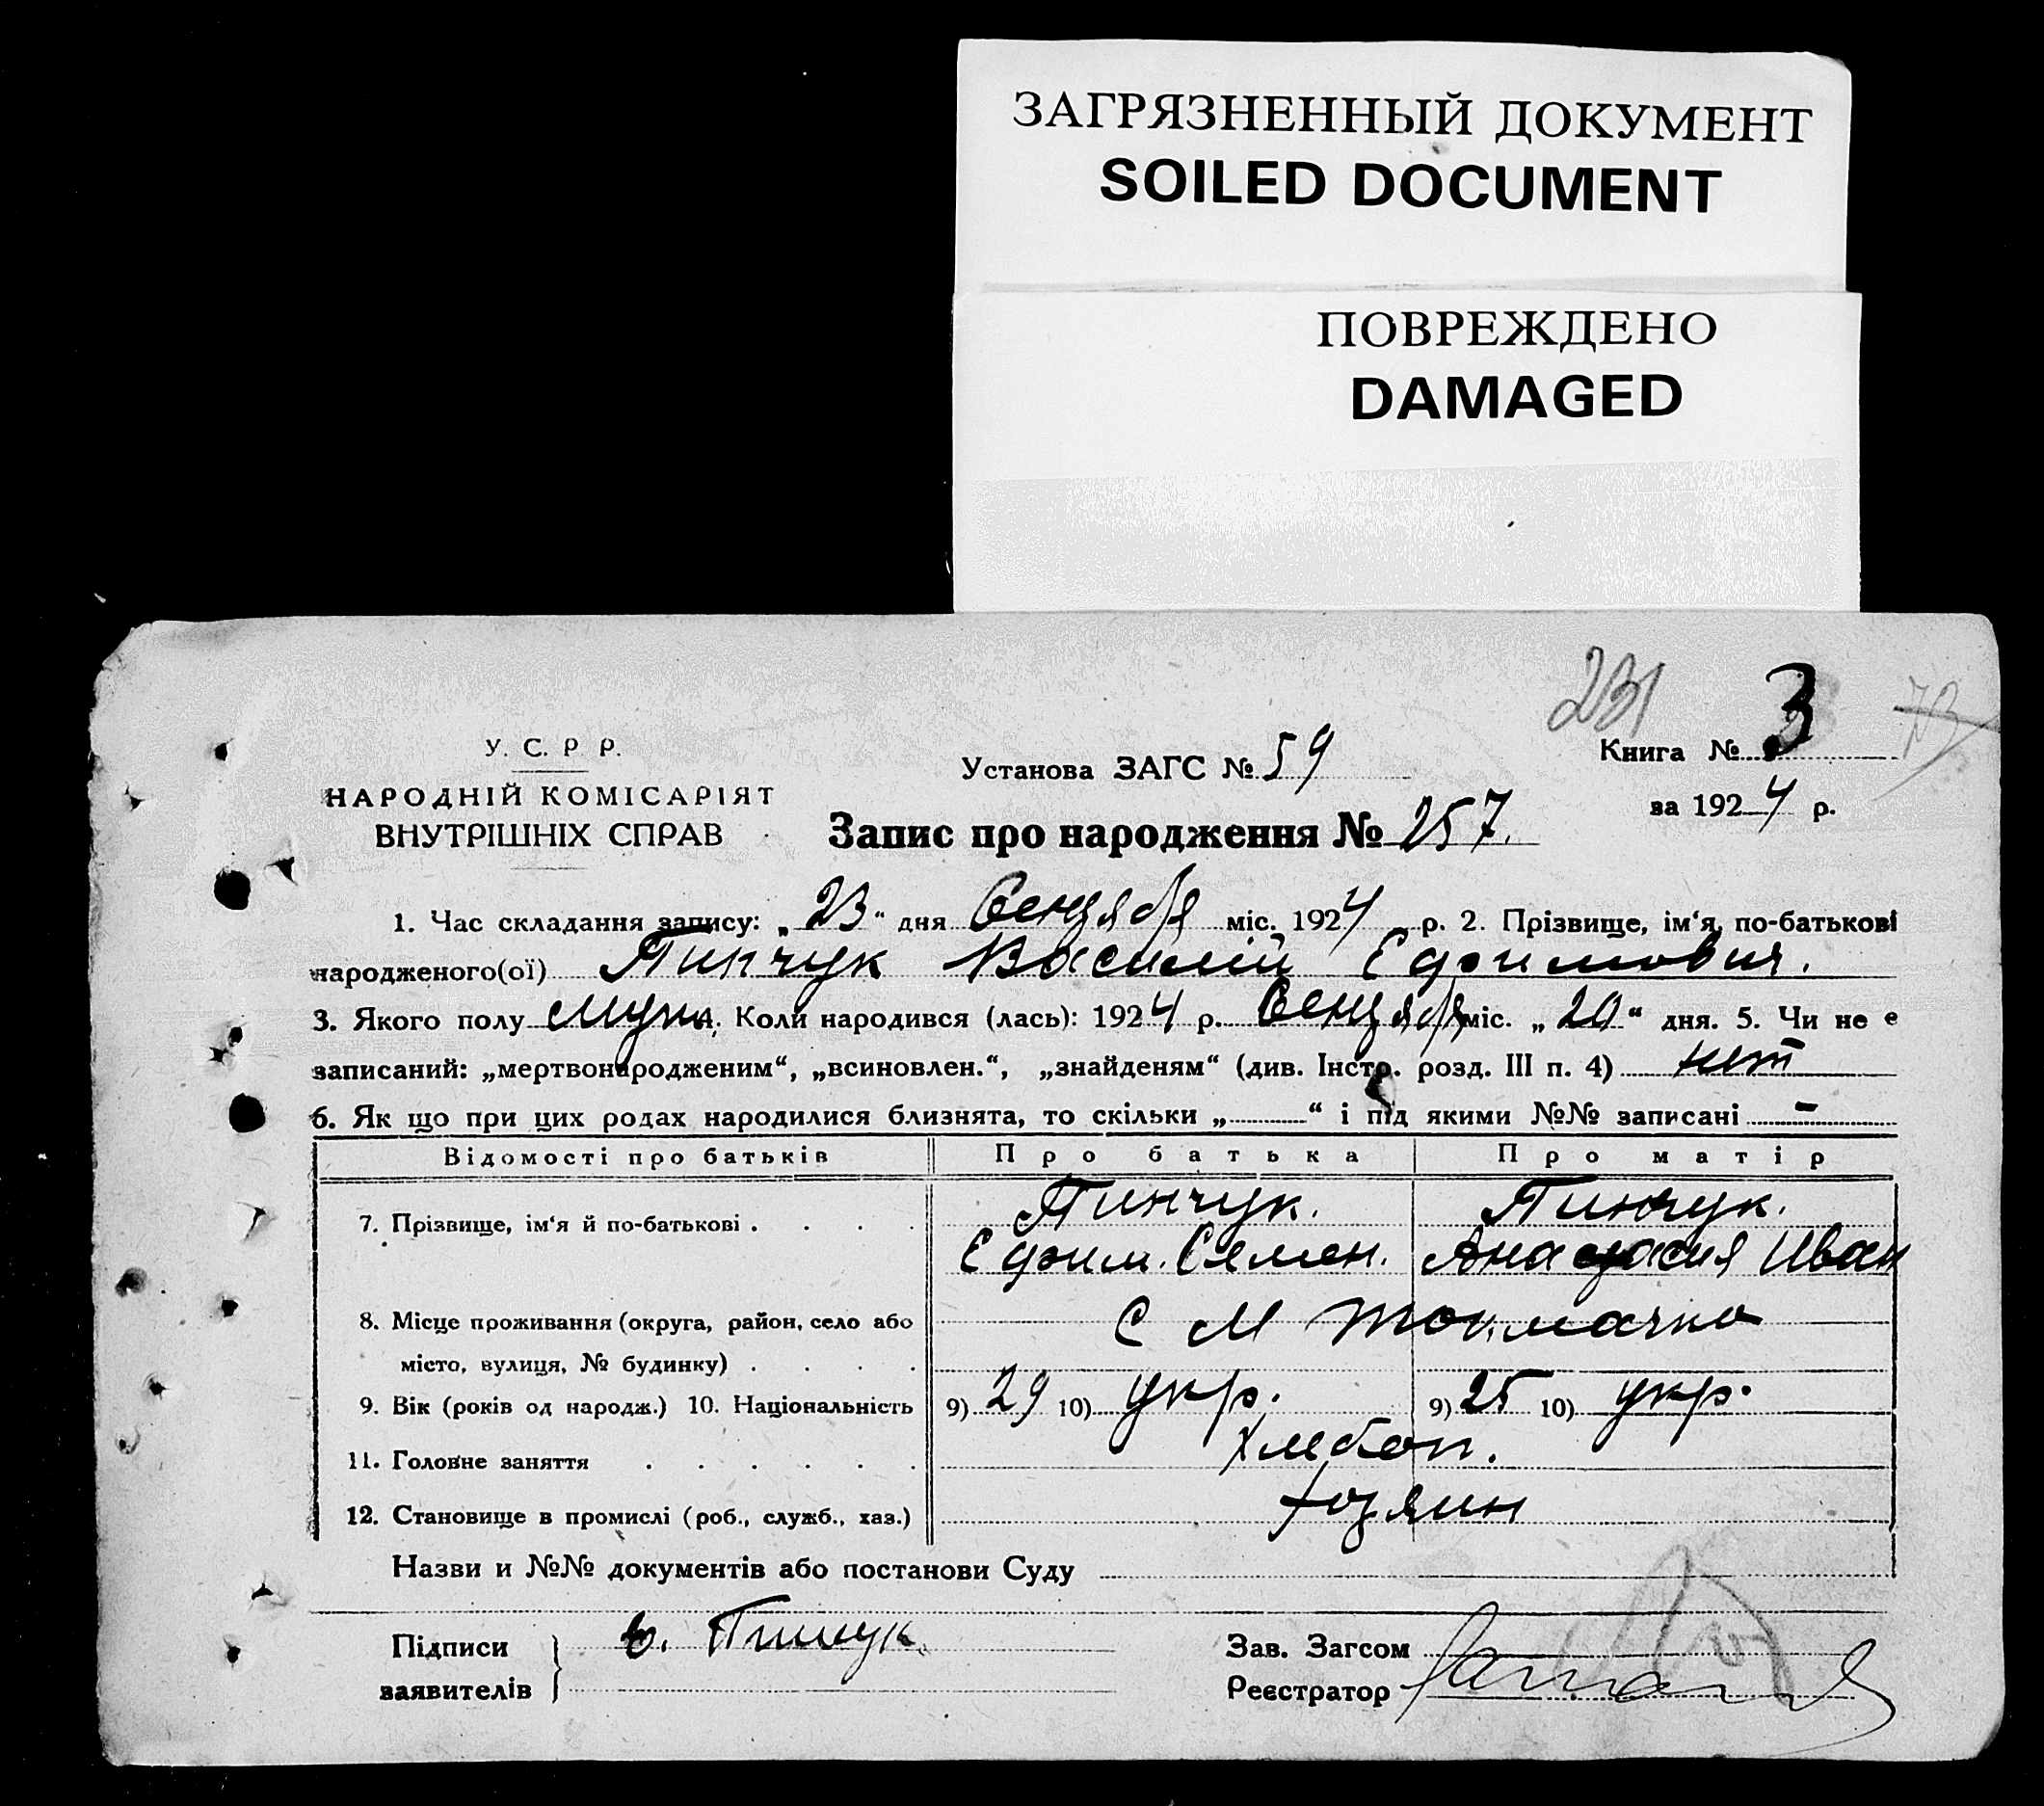 ЗАГРЯЗНЕННЫЙ ДОКУМЕНТ
SOILED DOCUMENT
ПОВРЕЖДЕНО
DAMAGED
231 3 73
У. С. Р Р.
Установа ЗАГС № 59
Книга № 3
НАРОДНІЙ КОМІСАРІЯТ
за 1924 р.
ВНУТРІШНІХ СПРАВ
Запис про народження № 257.
1. Час складання запису: „23“ дня Сентября міс. 1924 р. 2. Прізвище, ім‘я, по-батькові
народженого(ої) Пинчук Василий Ефимович.
3. Якого полу Муж. 4. Коли народився (лась): 1924 р. Сентября міс. „20“ дня. 5. Чи не є
записаний: „мертвонародженим“, „всиновлен.“, „знайденям“ (див. Інстр. розд. III п. 4) нет
6. Як що при цих родах народилися близнята, то скільки „ “ і під якими №№ записані –
Відомості про батьків Про батька Про матір
7. Прізвище, ім‘я й по-батькові . . . . Пинчук. Пинчук.
Ефим. Семен. Анастасия Иван
8. Місце проживання (округа, район, село або С М Токмачка
місто, вулиця, № будинку) . . . .
9. Вік (років од народж.) 10. Національність 9) 29 10) укр. 9) 25 10) укр.
11. Головне заняття . . . . . . Хлебоп.
12. Становище в промислі (роб., служб., хаз.) хозяин
Назви и №№ документів або постанови Суду
Підписи Е. Пинчук
Зав. Загсом
заявителів
Реєстратор